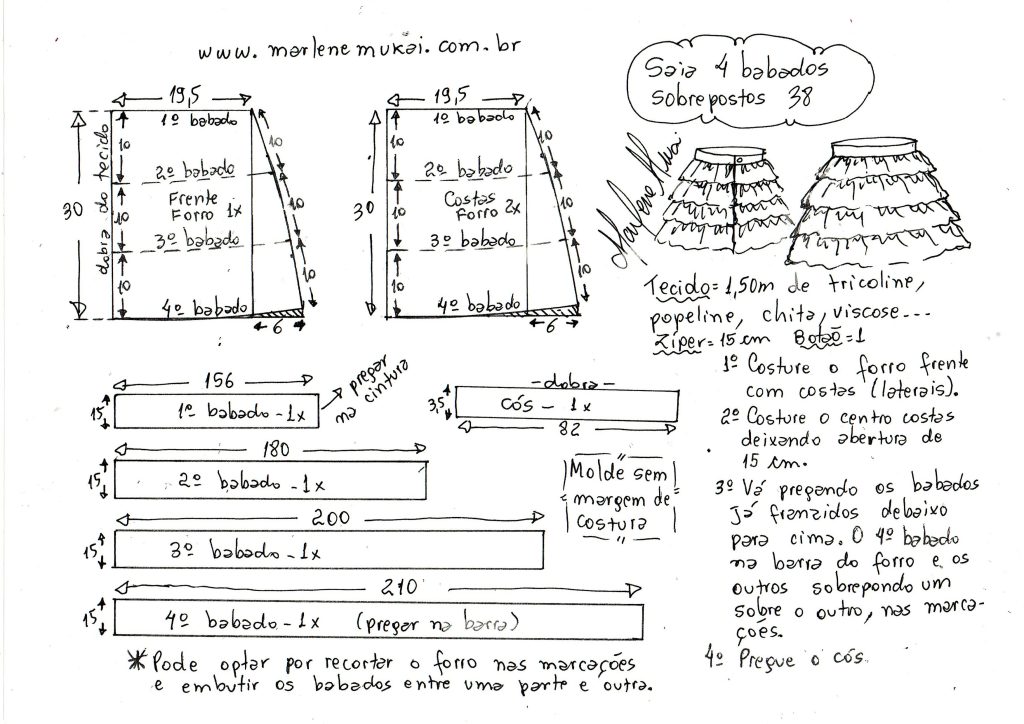 www.marlenemukai.com.br
Saia 4 babados
Sobrepostos 38
19,5
1º babado
10
10
2º babado
dobra do tecido
30
Frente
Forro 1x
10
10
3º babado
10
10
4º babado
6
19,5
1º babado
10
10
2º babado
30
Costas
Forro 2x
10
10
3º babado
10
10
4º babado
6
Marlene Mukai
Tecido = 1,50m de tricoline,
popeline, chita, viscose...
Zíper = 15 cm Botão = 1
1º Costure o forro frente
com costas (laterais).
2º Costure o centro costas
deixando abertura de
15 cm.
3º Vá pregando os babados
já franzidos debaixo
para cima. O 4º babado
na barra do forro e os
outros sobrepondo um
sobre o outro, nas marca-
ções.
4º Pregue o cós.
156
15
1º babado - 1x
pregar
na cintura
- dobra -
3,5
cós - 1x
82
180
15
2º babado - 1x
Molde sem
margem de
costura
200
15
3º babado - 1x
210
15
4º babado - 1x (pregar na barra)
* Pode optar por recortar o forro nas marcações
e embutir os babados entre uma parte e outra.